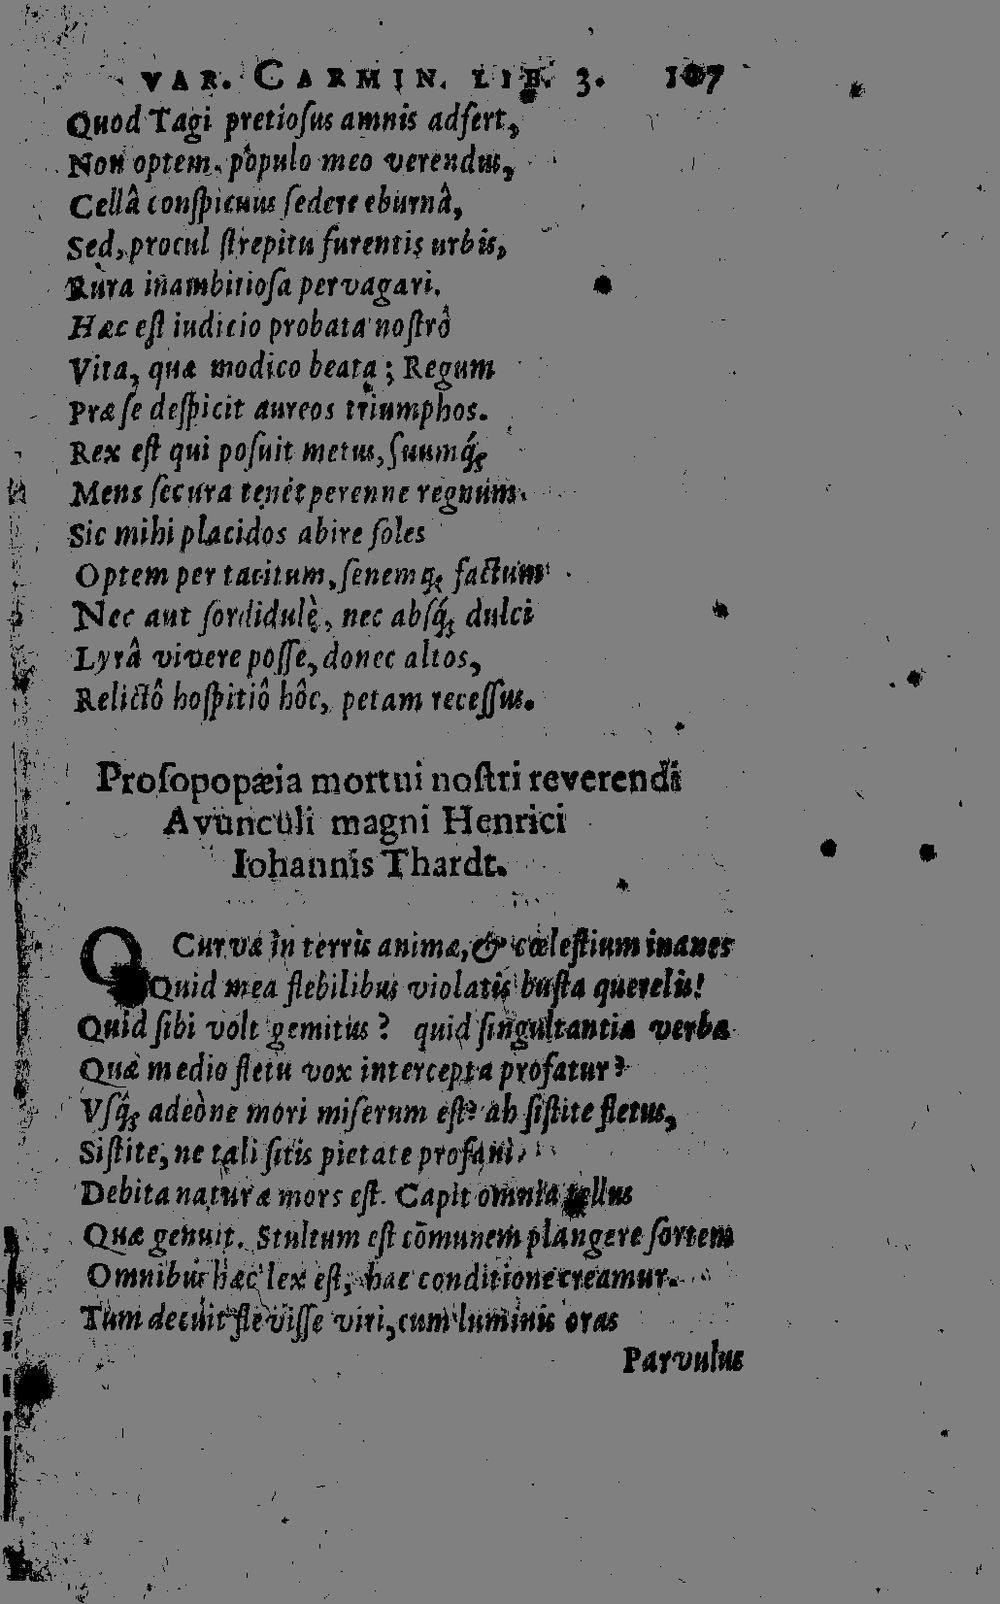 VAR. CARMIN. LIB. 3. 107
Quod Tagi pretioſus amnis adfert,
Non optem, populo meo verendus,
Cellâ conſpicuus ſedere eburnâ,
Sed, procul ſtrepitu furentis urbis,
Rura inambitioſa pervagari.
Hæc eſt iudicio probata noſtrô
Vita, quæ modico beata; Regum
Præ ſe deſpicit aureos triumphos.
Rex eſt qui poſuit metus, ſuumq́;
Mens ſecura tenet perenne regnum.
Sic mihi placidos abire ſoles
Optem per tacitum, ſenemq; factum
Nec aut ſordidulè, nec abſq́; dulci
Lyrâ vivere poſſe, donec altos,
Relictô hoſpitiô hôc, petam receſſus.
Proſopopæia mortui noſtri reverendi
Avunculi magni Henrici
Iohannis Thardt.
O Curvæ in terris animæ, & cœleſtium inanes
Quid mea flebilibus violatis buſta querelis!
Quid ſibi volt gemitus? quid ſingultantia verba
Quæ medio fletu vox intercepta profatur?
Vſq́; adeòne mori miſerum eſt? ah ſiſtite fletus,
Siſtite, ne tali ſitis pietate profani.
Debita naturæ mors eſt. Capit omnia tellus
Quæ genuit. Stultum eſt cōmunem plangere ſortem
Omnibus hæc lex eſt, hac conditione creamur.
Tum decuit fleviſſe viri, cum luminis oras
Parvulus